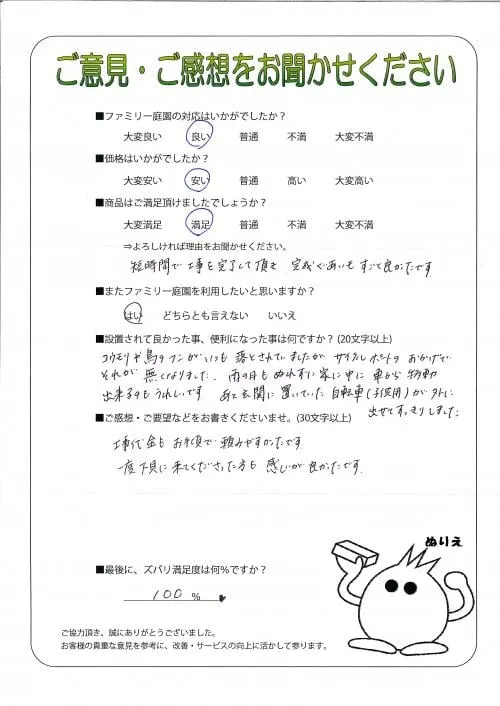 ご意見・ご感想をお聞かせください
■ファミリー庭園の対応はいかがでしたか？
大変良い 良い 普通 不満 大変不満
■価格はいかがでしたか？
大変安い 安い 普通 高い 大変高い
■商品はご満足頂けましたでしょうか？
大変満足 満足 普通 不満 大変不満
⇒よろしければ理由をお聞かせください。
短時間で工事を完了して頂き 完成ぐあいも すごく良かったです
■またファミリー庭園を利用したいと思いますか？
はい どちらとも言えない いいえ
■設置されて良かった事、便利になった事は何ですか？(20文字以上)
コウモリや鳥のフンがいつも 落とされていましたが サイクルポートの おかげで
それが 無くなりました。雨の日も ぬれずに 家に中に 車から 移動
出来るのも うれしいです あと玄関に 置いていた 自転車(子供用)が 外に
出せて すっきりしました
■ご感想・ご要望などをお書きくださいませ。(30文字以上)
工事代金も お手頃で 頼みやすかったです
一度下見に 来てくださった方も 感じが 良かったです。
ぬりえ
■最後に、ズバリ満足度は何％ですか？
100 %
ご協力頂き、誠にありがとうございました。
お客様の貴重な意見を参考に、改善・サービスの向上に活かして参ります。